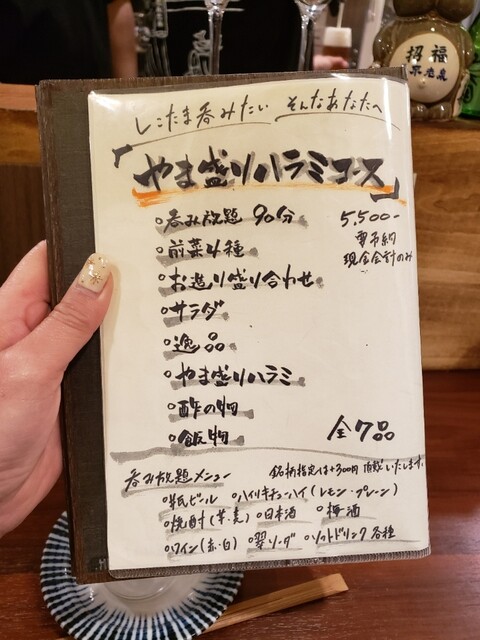 招福
しこたま呑みたい そんなあなたへ
「やま盛りハラミコース」
○呑み放題 90分 5,500-
○前菜4種 要予約
現金会計のみ
○お造り盛り合わせ
○サラダ
○逸品
○やま盛りハラミ
○酢の物
○飯物 全7品
呑み放題メニュー 銘柄指定は+300円頂戴いたします。
○瓶ビール ○ハイリキチューハイ(レモン・プレーン)
○焼酎(芋・麦) ○日本酒 ○梅酒
○ワイン(赤・白) ○翠ソーダ ○ソフトドリンク各種